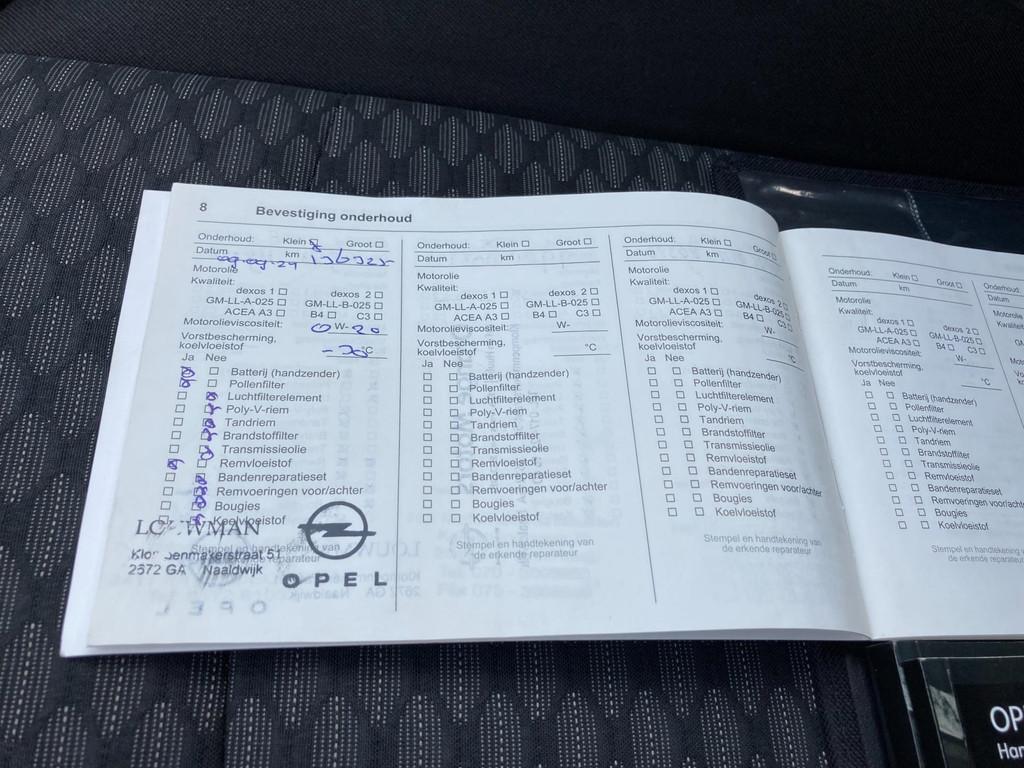 8 Bevestiging onderhoud
Onderhoud: Klein Groot
Datum km
09-09-24
Motorolie
Kwaliteit:
dexos 1 dexos 2
GM-LL-A-025 GM-LL-B-025
ACEA A3 B4 C3
Motorolieviscositeit: 0 W- 20
Vorstbescherming,
koelvloeistof °C
Ja Nee
Batterij (handzender)
Pollenfilter
Luchtfilterelement
Poly-V-riem
Tandriem
Brandstoffilter
Transmissieolie
Remvloeistof
Bandenreparatieset
Remvoeringen voor/achter
Bougies
Koelvloeistof
Stempel en handtekening van
de erkende reparateur
2672 GA Naaldwijk
OPEL
Onderhoud: Klein Groot
Datum km
Motorolie
Kwaliteit:
dexos 1 dexos 2
GM-LL-A-025 GM-LL-B-025
ACEA A3 B4 C3
Motorolieviscositeit: W-
Vorstbescherming,
koelvloeistof °C
Ja Nee
Batterij (handzender)
Pollenfilter
Luchtfilterelement
Poly-V-riem
Tandriem
Brandstoffilter
Transmissieolie
Remvloeistof
Bandenreparatieset
Remvoeringen voor/achter
Bougies
Koelvloeistof
Stempel en handtekening van
de erkende reparateur
Onderhoud: Klein Groot
Datum km
Motorolie
Kwaliteit:
dexos 1 dexos 2
GM-LL-A-025 GM-LL-B-025
ACEA A3 B4 C3
Motorolieviscositeit: W-
Vorstbescherming,
koelvloeistof °C
Ja Nee
Batterij (handzender)
Pollenfilter
Luchtfilterelement
Poly-V-riem
Tandriem
Brandstoffilter
Transmissieolie
Remvloeistof
Bandenreparatieset
Remvoeringen voor/achter
Bougies
Koelvloeistof
Stempel en handtekening van
de erkende reparateur
Onderhoud: Klein Groot
Datum km
Motorolie
Kwaliteit:
dexos 1 dexos 2
GM-LL-A-025 GM-LL-B-025
ACEA A3 B4 C3
Motorolieviscositeit: W-
Vorstbescherming,
koelvloeistof °C
Ja Nee
Batterij (handzender)
Pollenfilter
Luchtfilterelement
Poly-V-riem
Tandriem
Brandstoffilter
Transmissieolie
Remvloeistof
Bandenreparatieset
Remvoeringen voor/achter
Bougies
Koelvloeistof
Stempel en handtekening v
de erkende reparateur
Onderhoud:
Datum
Motorolie